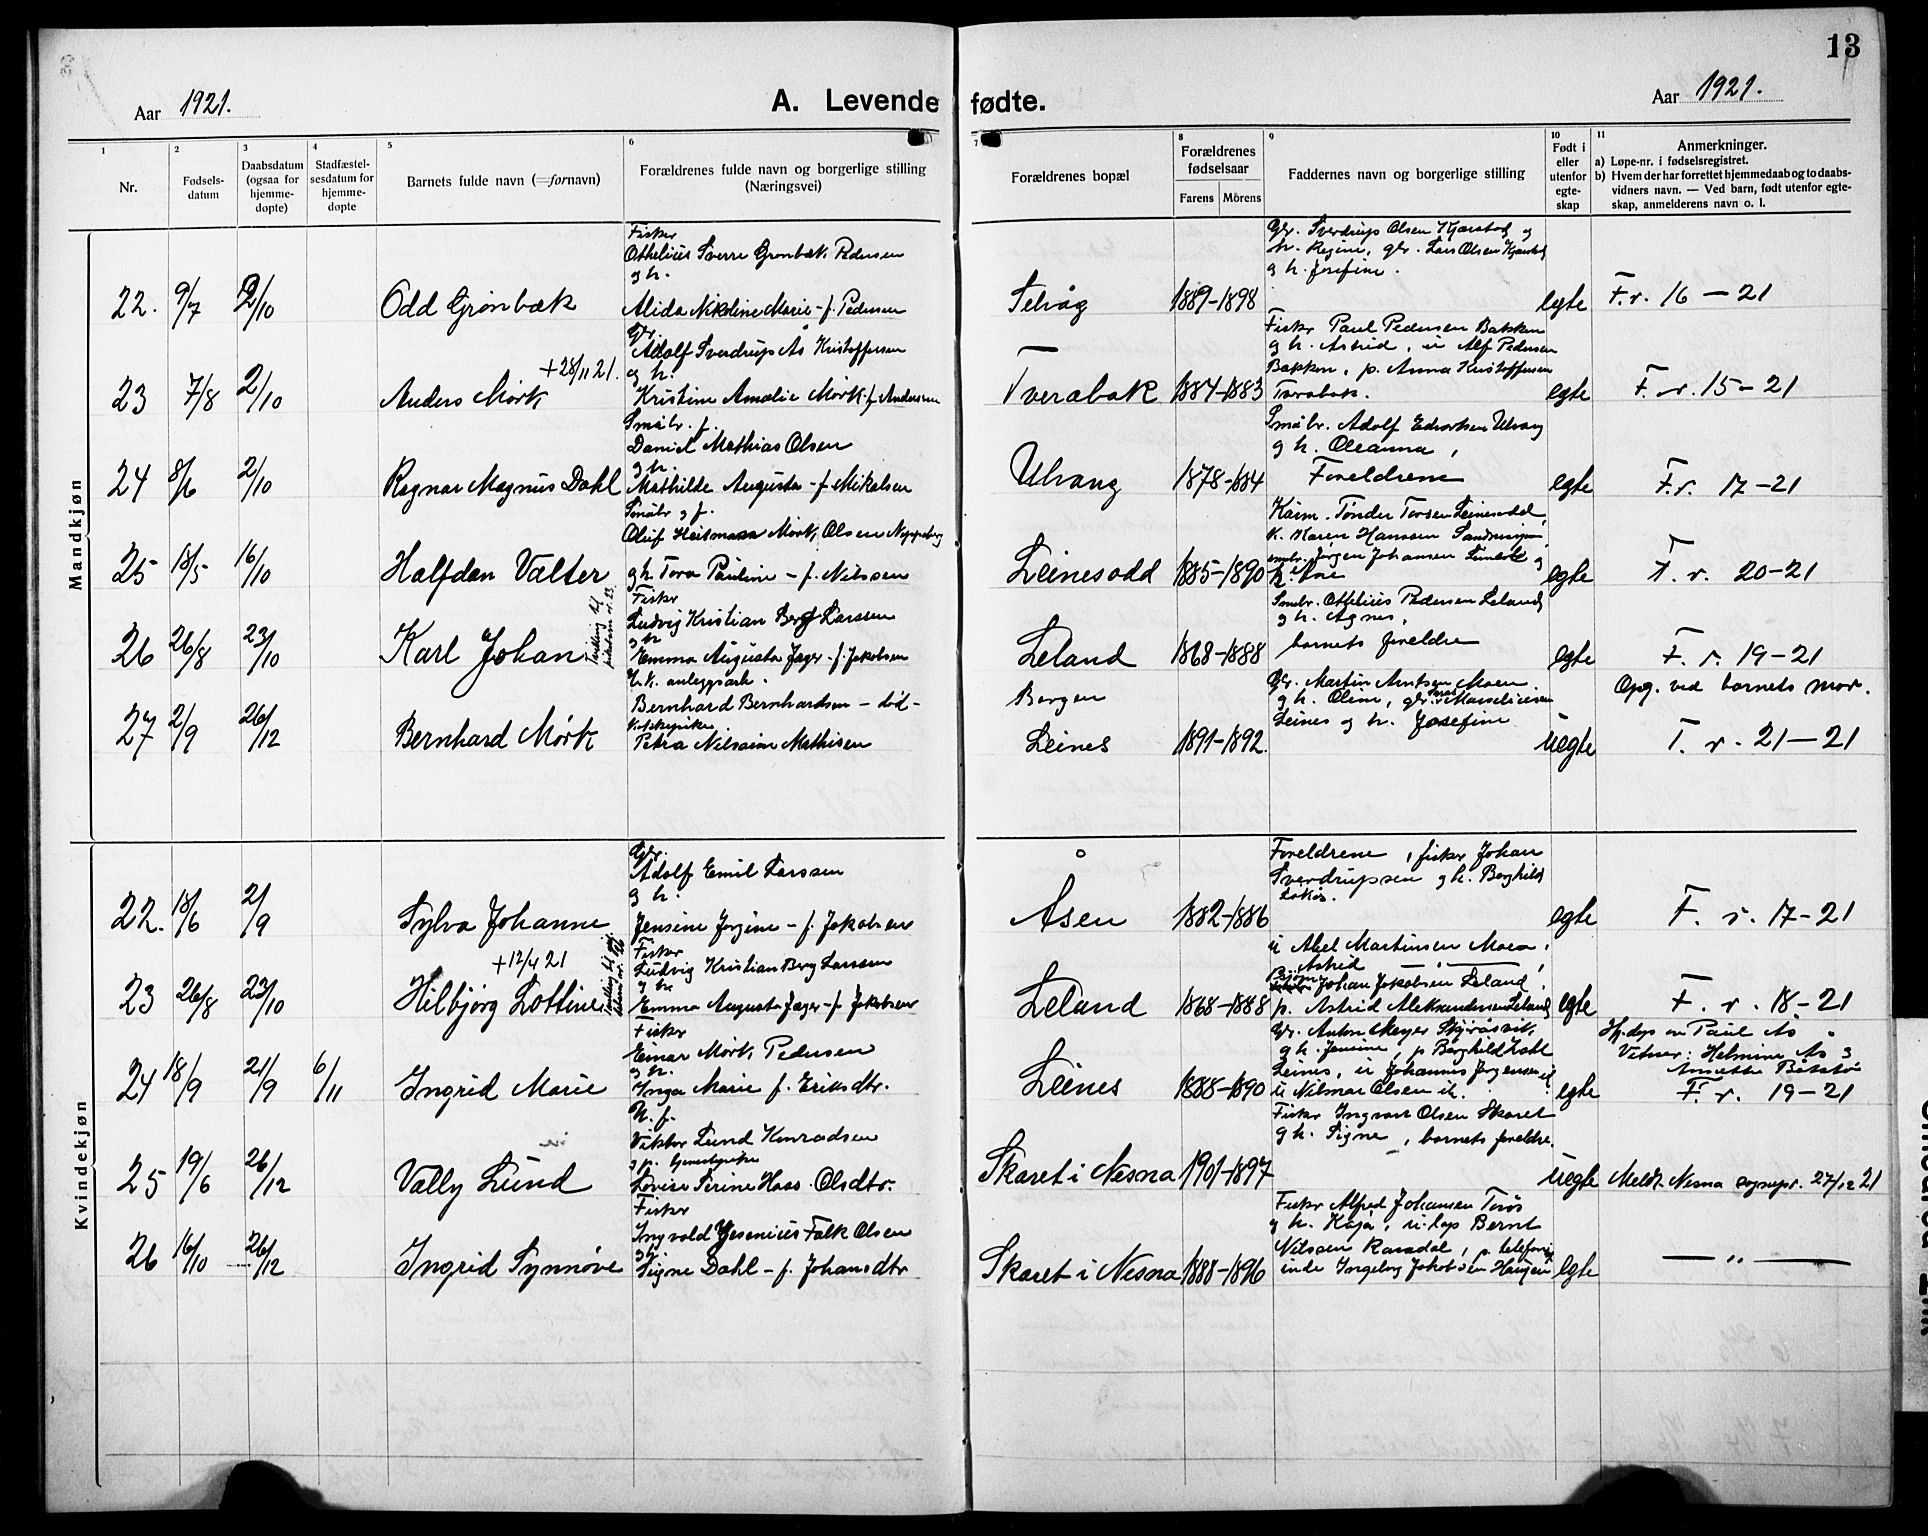 13
Aar 1921.
A. Levende fødte.
Aar 1921.
1
2
3
4
5
6
7
8
9
10
11
Nr.
Fødsels-
datum
Daabsdatum
(ogsaa for
hjemme-
døpte)
Stadfæstel-
sesdatum for
hjemme-
døpte
Barnets fulde navn (=fornavn)
Forældrenes fulde navn og borgerlige stilling
(Næringsvei)
Forældrenes bopæl
Forældrenes
fødselsaar
Farens
Morens
Faddernes navn og borgerlige stilling
Født i
eller
utenfor
egte-
skap
Anmerkninger.
a) Løpe-nr. i fødselsregistret.
b) Hvem der har forrettet hjemmedaab og to daabs-
vidners navn. — Ved barn, født utenfor egte-
skap, anmelderens navn o. l.
Mandkjøn
22. 9/7 2/10 Odd Grønbæk
Fisker
Othelius Sverre Grønbæk Pedersen
og h.
Alida Nikoline Marie - f. Pedersen
Selvåg 1889-1898
Gbr. Sverdrup Olsen Kjærstad og
h. Regine, gbr. Lars Olsen Kjærstad
og h. Josefine.
egte F.r. 16 - 21
23 7/8 2/10 Anders Mørk +28/11 21.
Gbr.
Adolf Sverdrup Ås Kristoffersen
og h.
Kristine Amalie Mørk f. Andersen
Tverabak 1884-1883
Fisker Paul Pedersen Bakken
og h. Astrid, u Alf Pedersen
Bakken, p. Anna Kristoffersen
Tverabak.
egte F.r. 15-21
24 8/6 2/10 Ragnar Magnus Dahl
Småbr. f.
Daniel Mathias Olsen
og h.
Mathilde Augusta - f Mikalsen
Ulvang 1878-1884
Småbr. Adolf Edvartsen Ulvang
og h. Oleanna,
Foreldrene
egte F.r. 17-21
25 18/5 16/10 Halfdan Valter
Småbr og f.
Oluf Heitmann Mørk Olsen
og h. Tora Pauline - f. Nilssen
Leinesodd 1885-1890
Tønder Torsen Leinesodd,
k. Karen Hanssen
Jørgen Johansen
egte F.r. 20-21
26 26/8 23/10 Karl Johan
Tvilling til
Fisker
Ludvig Kristian Berg Larssen
og h
Emma Augusta Jager - f. Jakobsen
Leland 1868-1888
Småbr. Othelius Pedersen Leland
og h. Agnes,
barnets foreldre
egte F.r. 19-21
27 2/9 26/12 Bernhard Mørk
U.K. anleggsarb.
Bernhard Bernhardsen - død -
Petra Nilsine Mathisen
Borgen
Leines 1891-1892.
Gbr. Martin Arntsen Moen
og h. Oline, gbr. Marseliusen
Leines og h. Josefine
uegte
Opg. ved barnets mor.
F.r. 21-21
Kvindekjøn
22. 18/6 2/9 Sylva Johanne
Gbr.
Adolf Emil Larssen
og h.
Jensine Jørgine - f. Jakobsen
Åsen 1882-1886
Foreldrene, fisker Johan
Sverdrupsen og h. Borghild
egte F.r. 17-21
23 26/8 23/10 Hilbjørg Lottine +12/4 21
Tvilling til
Fisker
Ludvig Kristian Berg Larssen
og h
Emma Augusta Jager - f. Jakobsen
Leland 1868-1888
u Abel Martinsen Moen,
Astrid
Johan Jakobsen Leland,
p. Astrid Aleksandersen Leland
egte F.r. 18-21
24 18/9 21/9 6/11 Ingrid Marie
Fisker
Einar Mørk Pedersen
og h.
Inga Marie f. Eriksdtr.
Leines 1888-1890
Gbr. Anton Meyer
og h. Jensine, p Borghild
Leines, u Johannes Jørgensen
u Nilmar Olsen
egte
Hj.døpt av Paul Ås
Vitner: Helmine Ås og
F.r. 19-21
25 19/6 26/12 Vally Lund
U.f.
Viktor Lund Konradsen
og p.
Lovise Serine Hass Olsdtr.
Skaret i Nesna 1901-1897
Fisker Ingvart Olsen Skaret
og h. Signe, barnets foreldre.
uegte Meldt Nesna sognepr. 27/12 21
26 16/10 26/12 Ingrid Synnøve
Fisker
Ingvald Jesenius Falk Olsen
og h
Signe Dahl - f. Johansdtr
Skaret i Nesna 1888-1896
Fisker Alfred Johansen
og h. Kaja, u. Bernt
Nilssen, p. telefon-
inde Ingeborg Jakobsen Haugen
egte — „ —